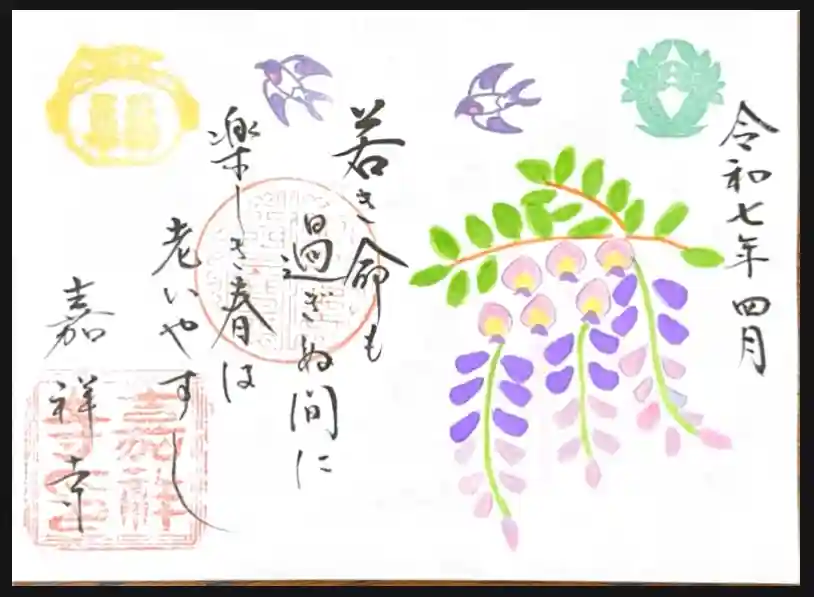 令和七年四月
若き命も
過ぎぬ間に
楽しき春は
老いやすし
嘉祥寺